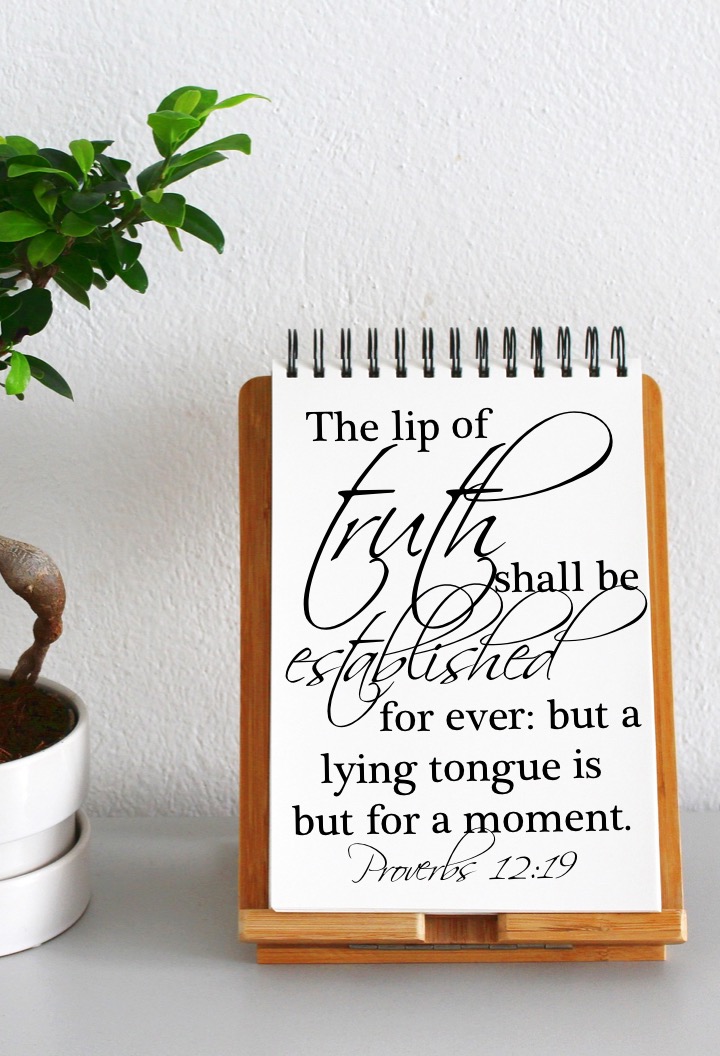 The lip of
truth
shall be
established
for ever: but a
lying tongue is
but for a moment.
Proverbs 12:19